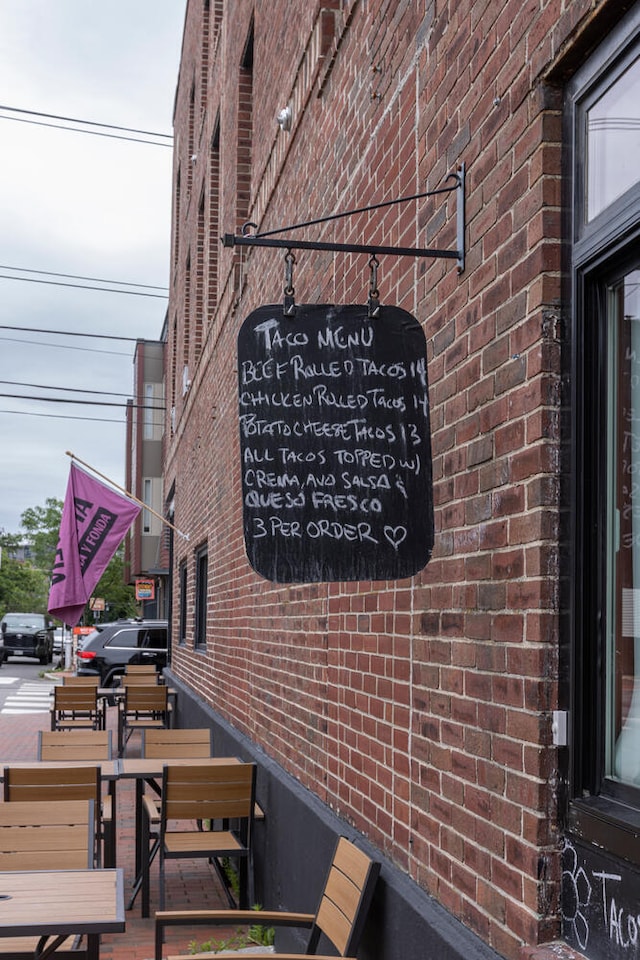 TACO MENU
BEEF ROLLED TACOS 14
CHICKEN ROLLED TACOS 14
POTATO CHEESE TACOS 13
ALL TACOS TOPPED W/
CREMA, AND SALSA &
QUESO FRESCO
3 PER ORDER ♡
Y FONDA
TACO